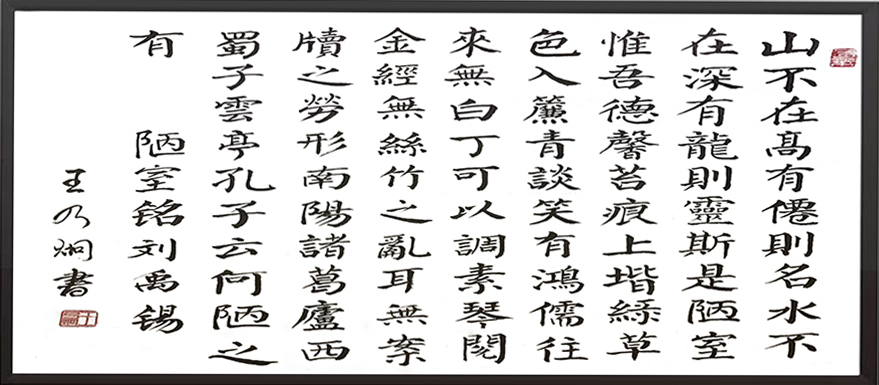 山不在髙有僊則名水不
在深有龍則靈斯是陋室
惟吾德馨苔痕上堦綠草
色入簾青談笑有鴻儒往
來無白丁可以調素琴閱
金經無絲竹之亂耳無案
牘之勞形南陽諸葛廬西
蜀子雲亭孔子云何陋之
有 陋室銘刘禹錫
王乃炯書